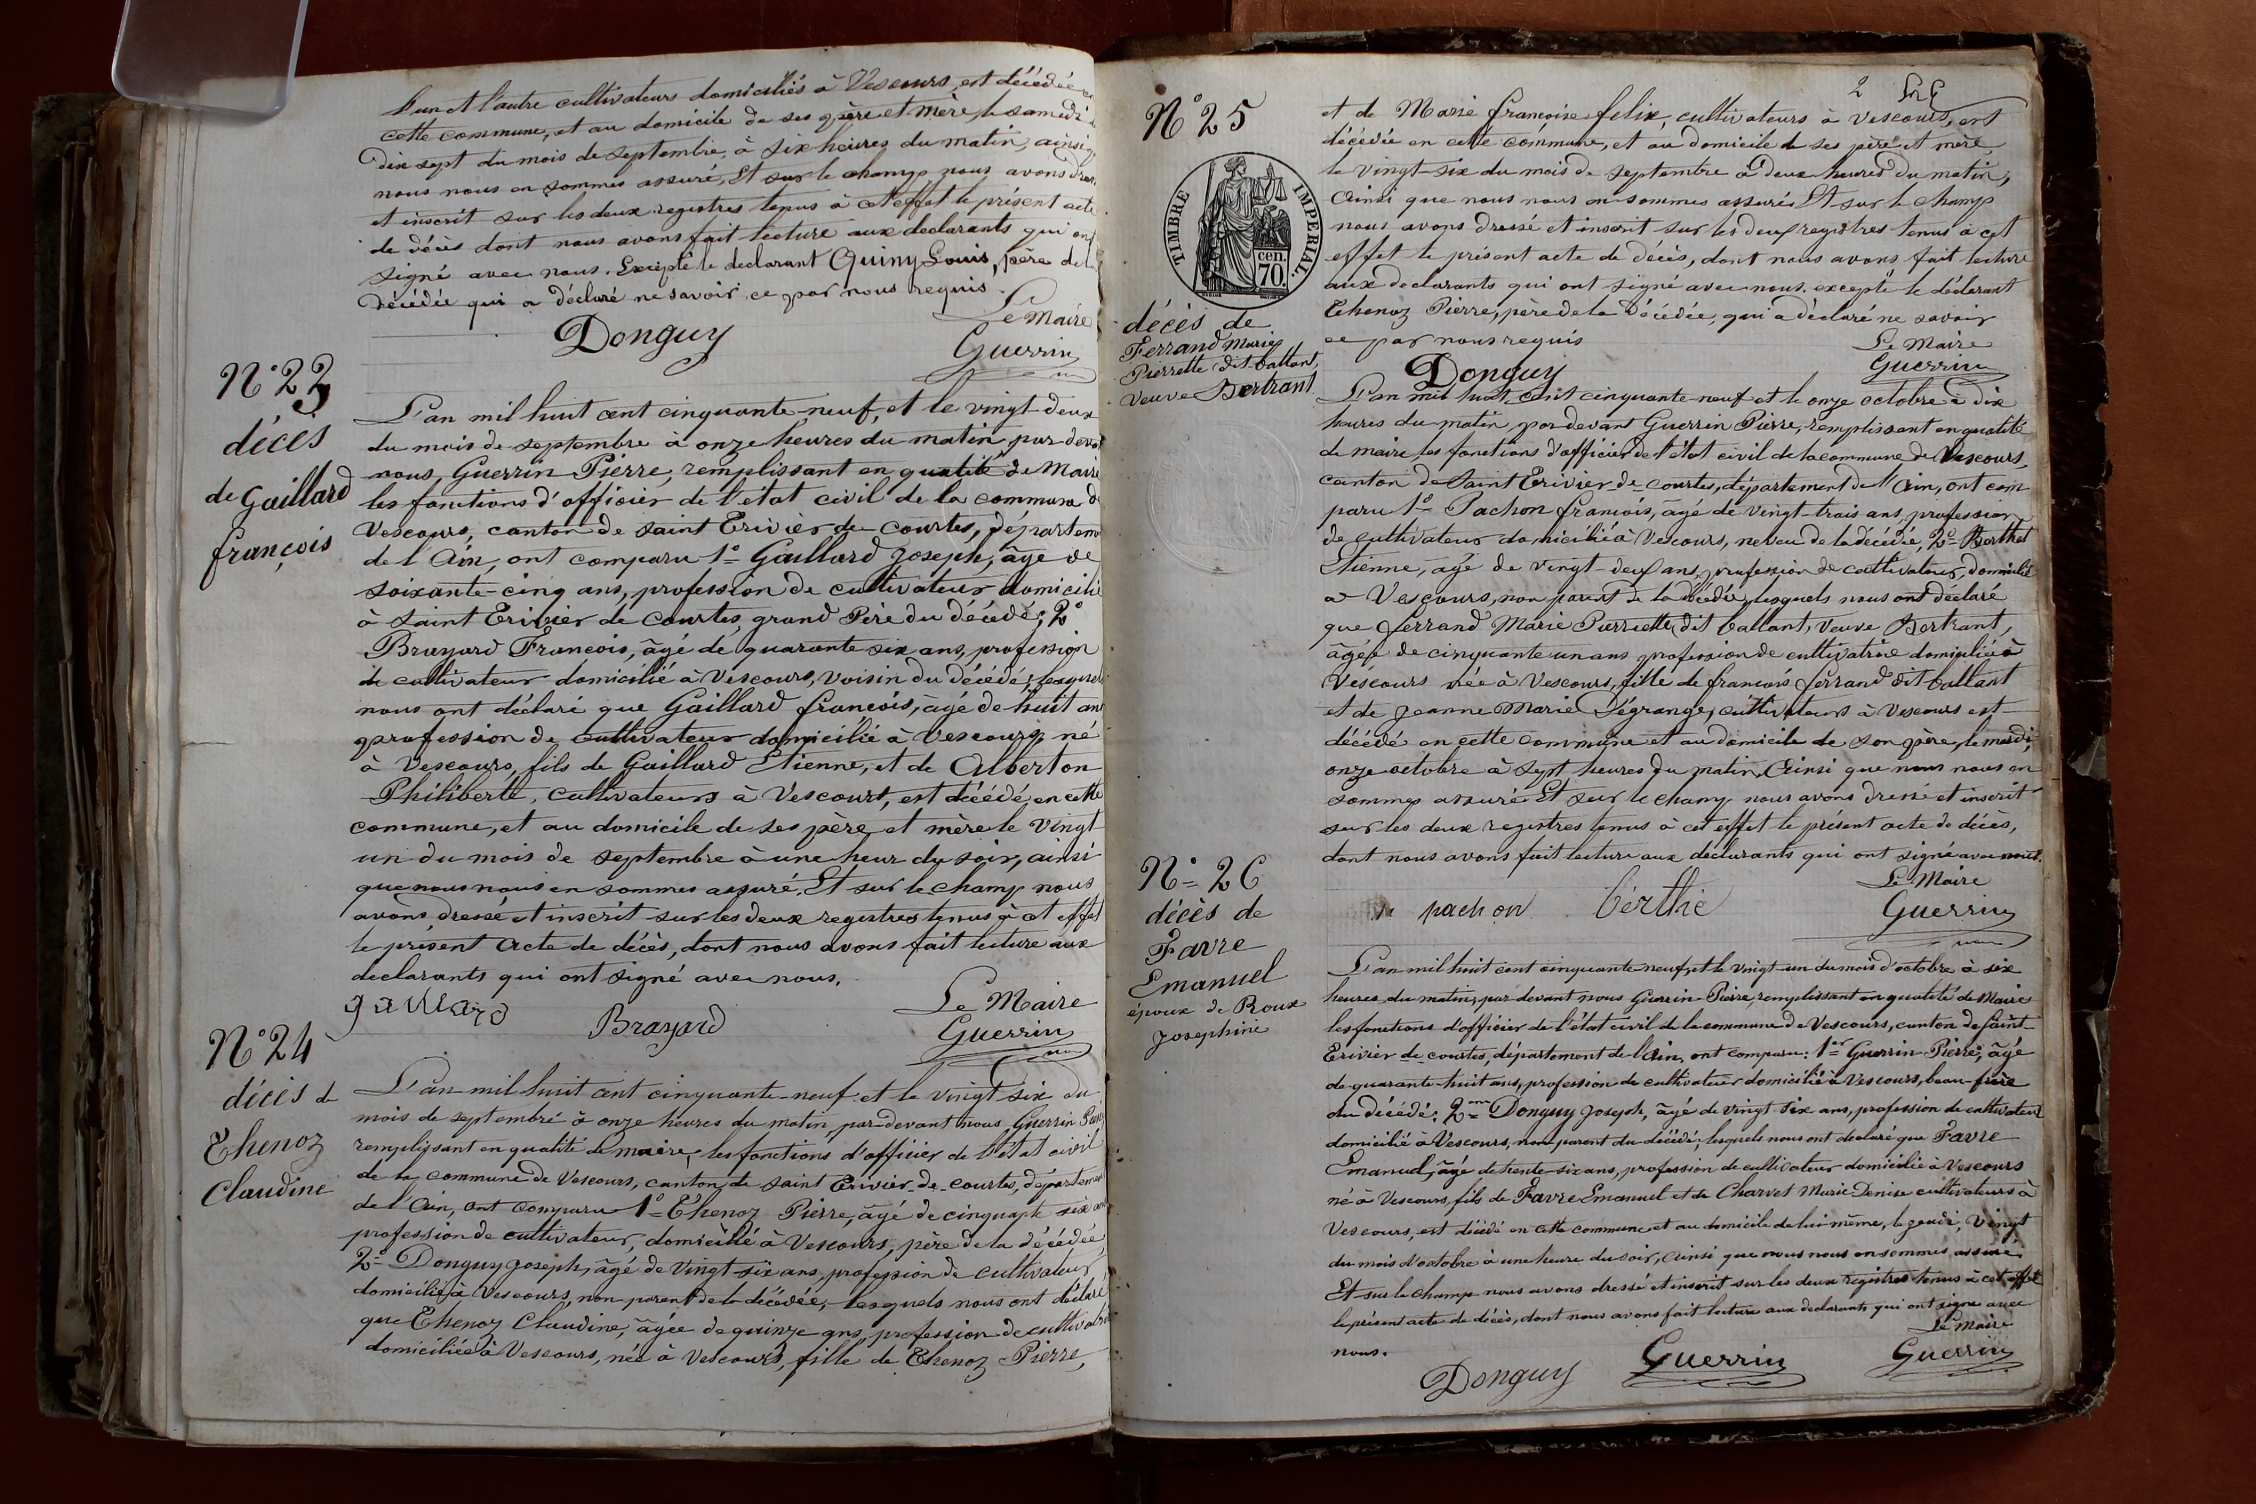 l'un et l'autre cultivateurs domiciliés à Vescours, est décédée en
cette commune, et au domicile de ses père et mère, le samedi
dix sept du mois de septembre, à six heures du matin, ainsi
nous nous en sommes assuré, Et sur le champ nous avons
et inscrit sur les deux registres tenus à cet effet le présent acte
de décès dont nous avons fait lecture aux declarants qui ont
signé avec nous. Excepté le declarant Quiny Louis, père de la
décédée qui a déclaré ne savoir ce par nous requis.
Le Maire
Donguy
Guerrin
N° 23
décès
de Gaillard
françois
L'an mil huit cent cinquante neuf, et le vingt-deux
du mois de septembre à onze heures du matin par deva
nous, Guerrin Pierre, remplissant en qualité de Maire
les fonctions d'officier de l'état civil de la commune de
Vescours, canton de saint Erivier de Courtes, départem
de l'Ain, ont comparu 1° Gaillard Joseph, âgé de
soixante-cinq ans, profession de cultivateur domicilié
à saint Erivier de Courtes, grand Père du décédé; 2°
Brayard François, âgé de quarante six ans, profession
de cultivateur domicilié à Vescours, voisin du décédé; lesquels
nous ont déclaré que Gaillard françois, âgé de huit ans
profession de cultivateur domicilié à Vescours, né
à Vescours, fils de Gaillard Etienne, et de Alberton
Philiberte, cultivateurs à Vescours, est décédé en cette
commune, et au domicile de ses père et mère le vingt
un du mois de septembre à une heur du soir, ainsi
que nous nous en sommes assuré. Et sur le champ nous
avons dressé et inscrit sur les deux registres tenus à cet effet
le présent acte de décès, dont nous avons fait lecture aux
declarants qui ont signé avec nous.
Le Maire
gaillard
Brayard
Guerrin
N° 24
décès de
Thenoz
Claudine
L'an mil huit cent cinquante-neuf et le vingt six du
mois de septembre à onze heures du matin par-devant nous, Guerrin
remplissant en qualité de maire, les fonctions d'officier de l'état civil
de la commune de Vescours, canton de saint Erivier-de-courtes, départemen
de l'Ain, ont comparu 1° Thenoz Pierre, âgé de cinquante six ans
profession de cultivateur, domicilié à Vescours, père de la décédée
2° Donguy joseph, âgé de vingt-six ans, profession de cultivateur
domicilié à Vescours, non parent de la décédée, lesquels nous ont déclaré
que Thenoz Claudine, âgée de quinze ans, profession de cultivatri
domiciliée à Vescours, née à Vescours, fille de Thenoz Pierre,
N° 25
TIMBRE IMPERIAL.
70. cen.
décès de
Ferrand Marie
Pierrette dit ballant,
veuve Bertrant
et de Marie françoise felix, cultivateurs à Vescours, est
décédée en cette commune, et au domicile de ses père et mère,
le vingt-six du mois de septembre à deux heures du matin,
Ainsi que nous nous en sommes assurés Et sur le champ
nous avons dressé et inscrit sur les deux registres tenus à cet
effet le présent acte de décès, dont nous avons fait lecture
aux declarants qui ont signé avec nous. excepté le déclarant
Thenoz Pierre, père de la décédée, qui a déclaré ne savoir
ce par nous requis
Le Maire
Donguy
Guerrin
L'an mil huit cent cinquante-neuf et le onze octobre à dix
heures du matin, par devant Guerrin Pierre, remplissant en qualité
de maire les fonctions d'officier de l'état civil de la commune de Vescours,
canton de Saint Erivier de courtes, département de l'Ain, ont com
paru 1° Pachon françois, âgé de vingt-trois ans, profession
de cultivateur domicilié à Vescours, neveu de la décédée, 2° Berthet
Etienne, âgé de vingt-deux ans, profession de cultivateur, domicilié
à Vescours, non parent de la décédée, lesquels nous ont déclaré
que ferrand Marie Pierrette, dit ballant, veuve Bertrant,
âgée de cinquante un ans profession de cultivatrice domiciliée à
Vescours née à Vescours, fille de françois ferrand dit ballant
et de Jeanne Marie Légrange, cultivateurs à Vescours est
décédé en cette commune et au domicile de son père, le mardi,
onze octobre à sept heures du matin, Ainsi que nous nous en
sommes assuré Et sur le champ nous avons dressé et inscrit
sur les deux registres tenus à cet effet le présent acte de décès,
dont nous avons fait lecture aux declarants qui ont signé avec nous.
Le Maire
pachon
bérthé
Guerrin
N° 26
décès de
Favre
Emanuel
époux de Roux
Josephine
L'an mil huit cent cinquante neuf, et le vingt-un du mois d'octobre à six
heures du matin, par devant nous Guerrin Pierre, remplissant en qualité de Maire
les fonctions d'officier de l'état civil de la commune de Vescours, canton de Saint-
Erivier de courtes, département de l'Ain, ont comparu: 1er Guerrin Pierre, âgé
de quarante-huit ans, profession de cultivateur domicilié à Vescours, beau-frère
du décédé; 2me Donguy joseph, âgé de vingt six ans, profession de cultivateur
domicilié à Vescours, non parent du décédé; lesquels nous ont déclaré que Favre
Emanuel, âgé de trente-six ans, profession de cultivateur domicilié à Vescours
né à Vescours, fils de Favre Emanuel et de Charvet Marie-Denise cultivateurs à
Vescours, est décédé en cette commune et au domicile de lui même, le jeudi, vingt
du mois d'octobre à une heure du soir, Ainsi que nous nous en sommes assuré.
Et sur le champ nous avons dressé et inscrit sur les deux registres tenus à cet effet
le présent acte de décès, dont nous avons fait lecture aux declarants qui ont signé avec
nous.
Le Maire
Donguy
Guerrin
Guerrin